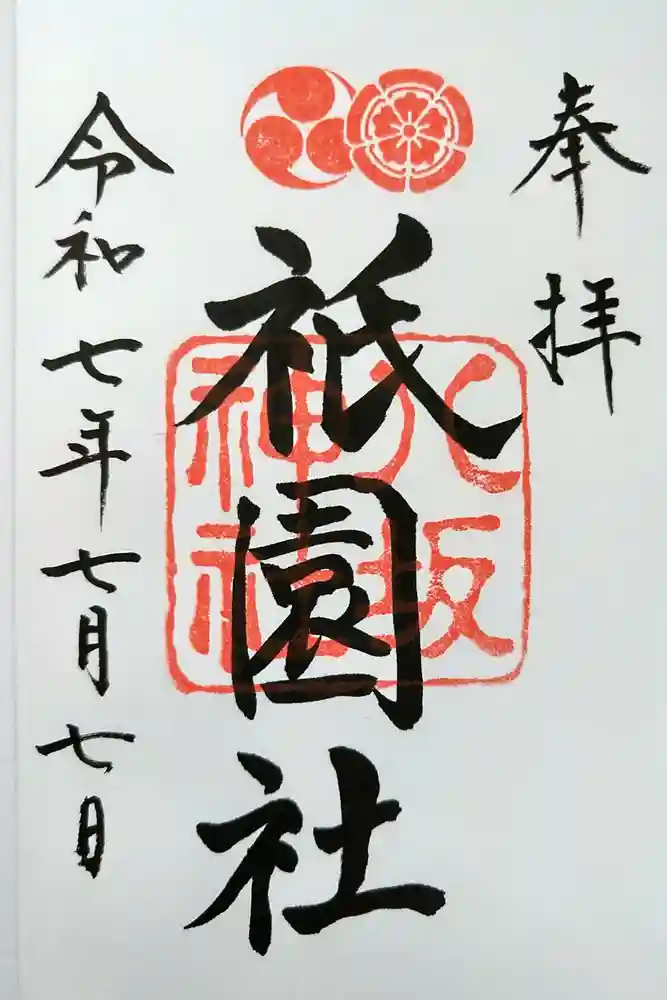 奉拝
祇園社
八坂
神社
令和七年七月七日